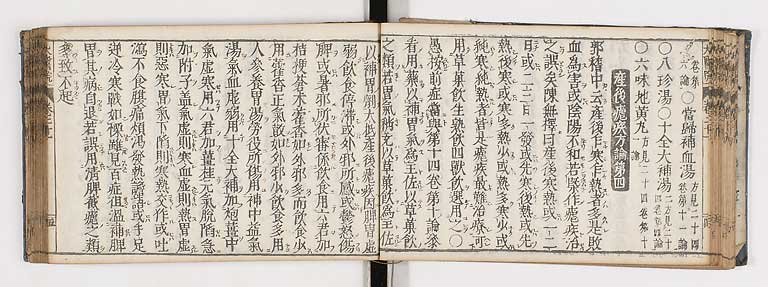 卷第
六論 ○當歸補血湯 方見二十四卷第十一論
○八珍湯○十全大補湯 二方見二十四卷第四論
○六味地黃丸 方見二十四卷第十一論
產後瘧疾方論第四
郭稽中云產後乍寒乍熱者多是敗
血為害或陰陽不和若緊作瘧疾治
之誤矣陳無擇曰產後寒熱或一二
日或二三日一發或先寒後熱或先
熱後寒或寒多熱少或熱多寒少或
純寒純熱者皆是瘧疾最難治療可
用草菓飲生熟飲四獸飲選用之○
愚按前症當與第十四卷第十論參
看用藥以補胃氣為主佐以草菓飲
之類若胃氣稍充以草菓飲為主佐
以補胃劑大抵產後瘧疾因脾胃虛
弱飲食停滯或外邪所感或鬱怒傷
脾或暑邪所伏審係飲食用六君加
桔梗蒼朮藿香如外邪多而飲食少
用藿香正氣散如外邪少飲食多用
人參養胃湯勞役所傷用補中益氣
湯氣血虛弱用十全大補加炮薑中
氣虛寒用六君加薑桂元氣脫陷急
加附子蓋氣虛則寒血虛則熱胃虛
則惡寒胃氣下陷則寒熱交作或吐
瀉不食腹痛煩渴發熱譫語或手足
逆冷寒戰如慄雖見百症但溫補脾
胃其病自退若誤用清脾截瘧之類
多致不起